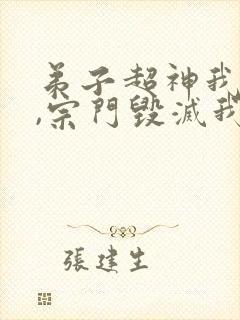 弟子超神我
,宗門毀滅我
張建生